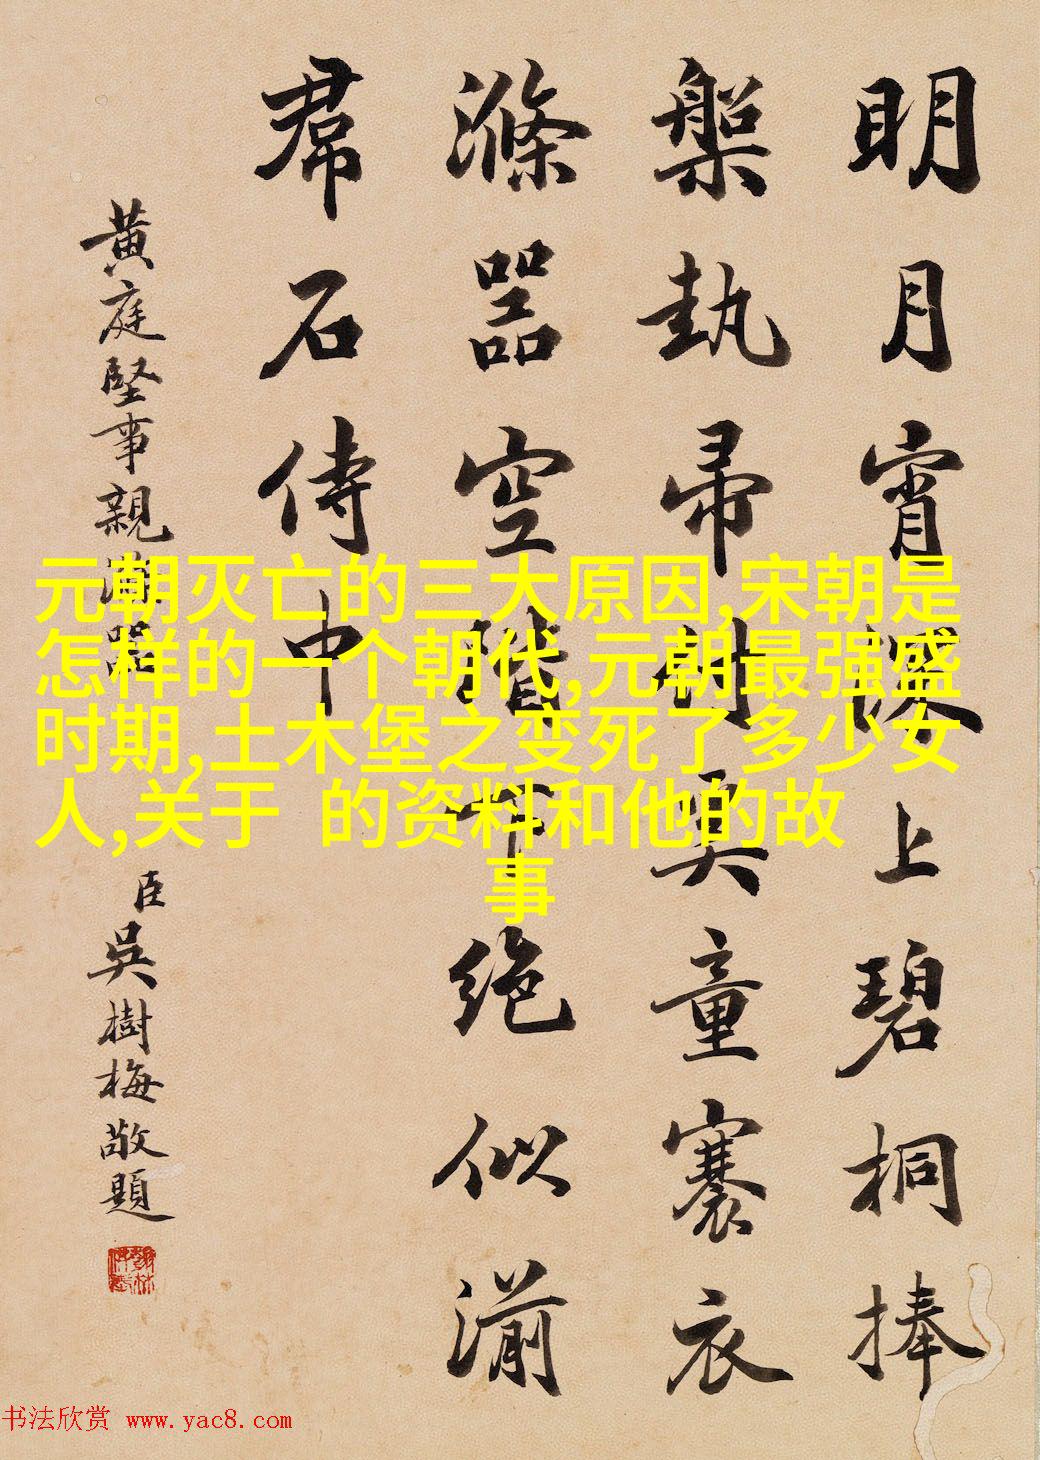 明月宵深上碧桐捧
槃執帚付奚童褰衣
滌器空階下絶似湔
帬石侍中
黄庭堅事親滌器
臣吳樹梅敬題
元朝灭亡的三大原因,宋朝是
怎样的一个朝代,元朝最强盛
时期,土木堡之变死了多少女
人,关于 的资料和他的故
事
书法欣赏 www.yac8.com